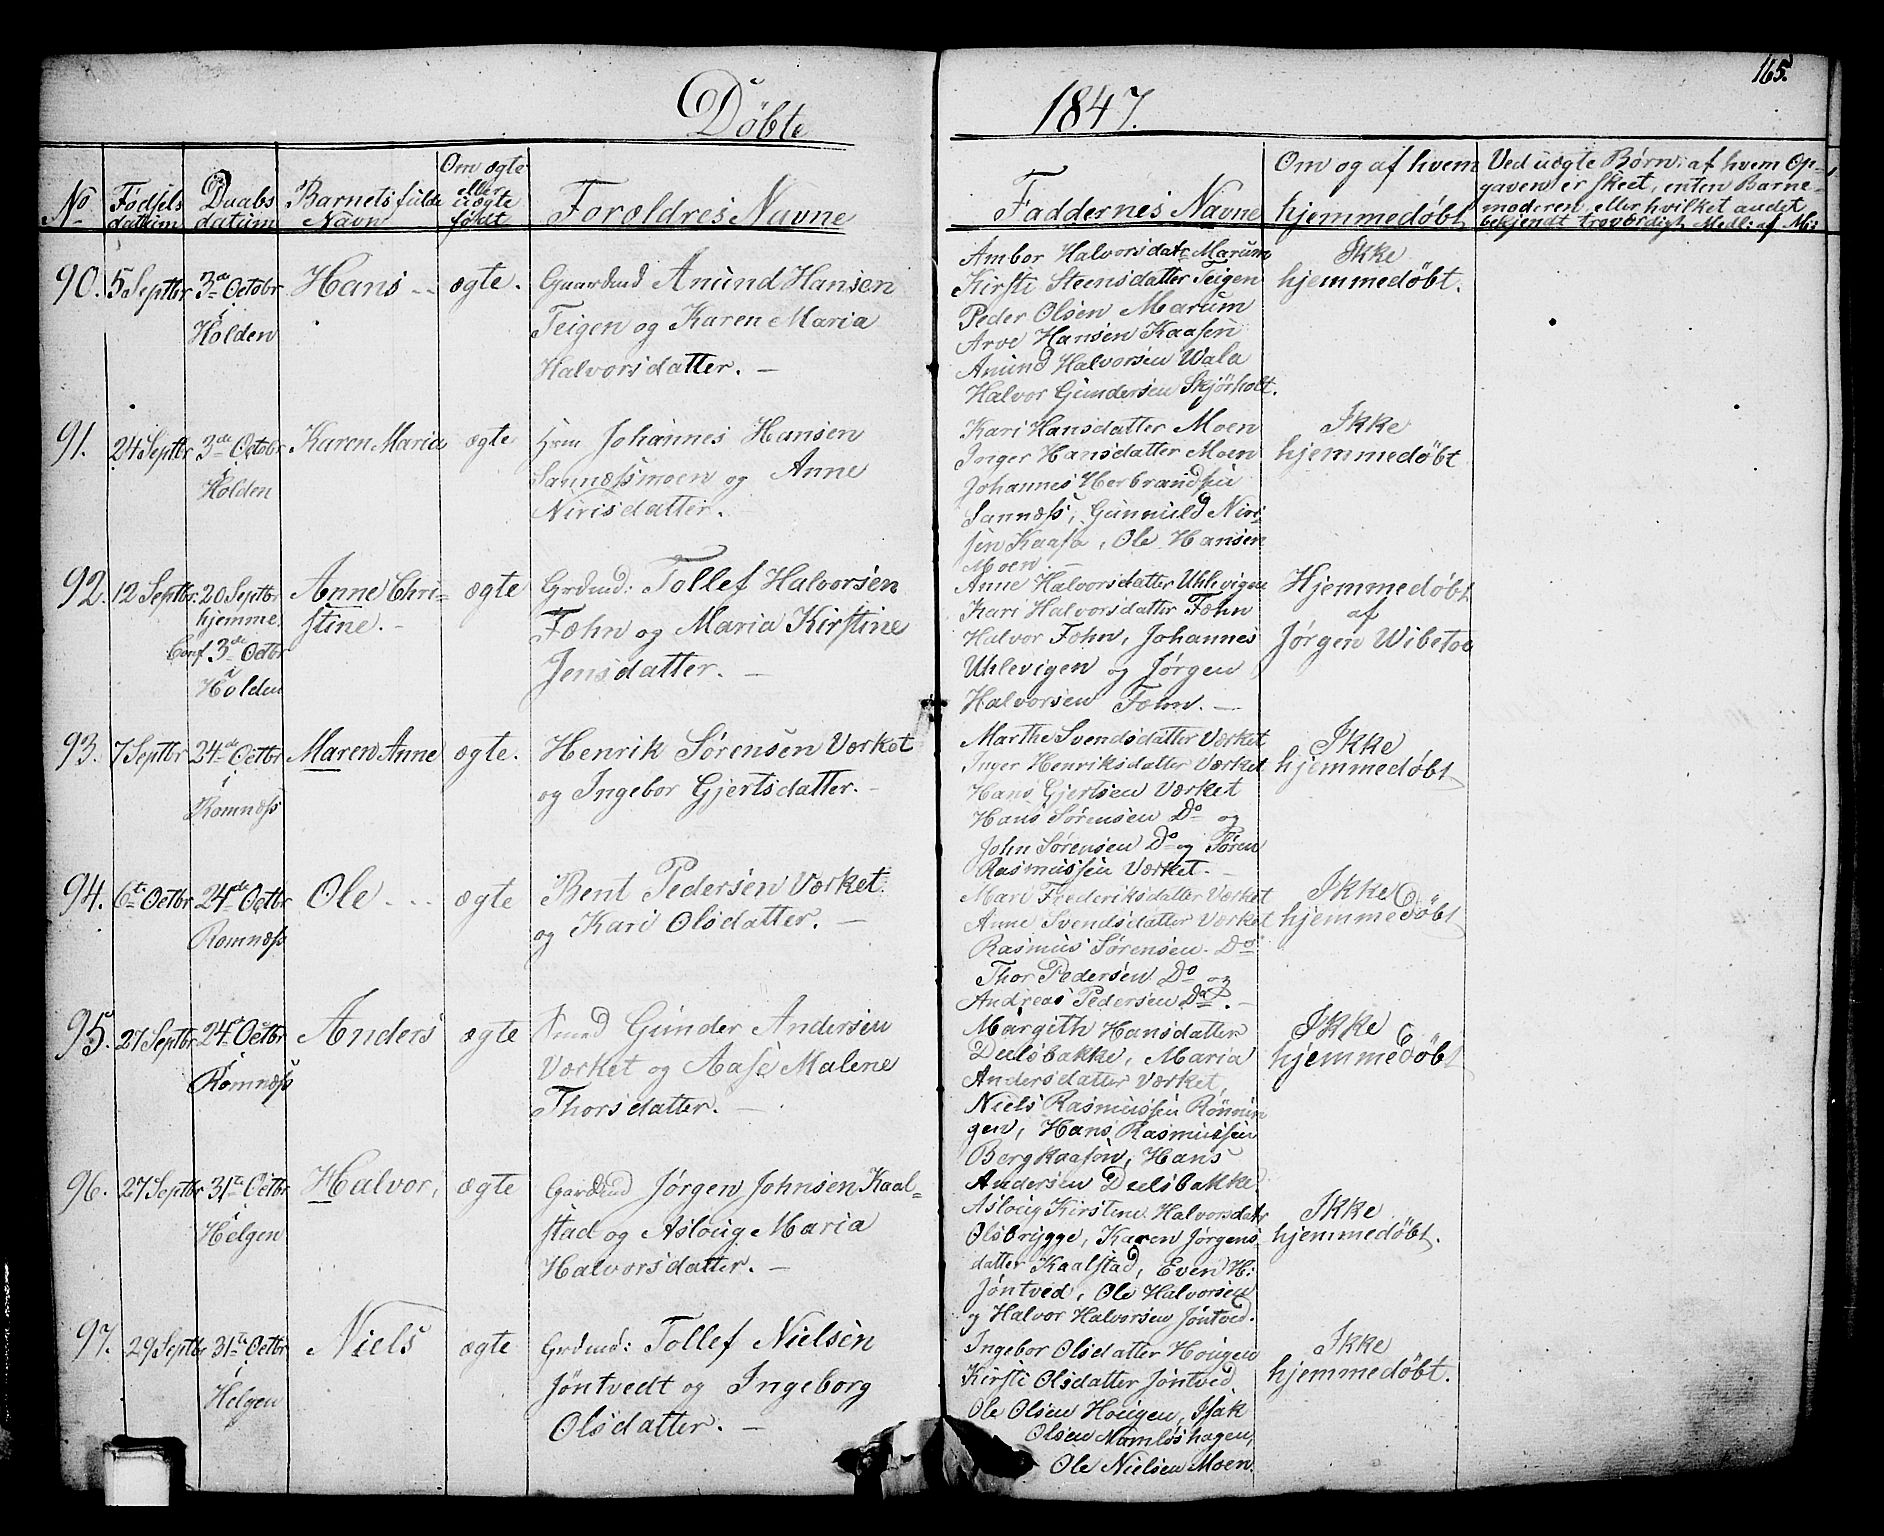 165.
Döbte
1847.
No
Fødsels
datum
Daabs
datum
Barnets fulde
Navn
Om ægte
eller
uægte
født
Forældres Navne
Faddernes Navne
Om og af hvem
hjemmedøbt
Ved uægte Børn: af hvem Op-
gaven er skeet, enten Barne-
moderen eller hvilket andet
bekjendt troværdigt Medl: af M:
90. 5 Septbr 3de Octobr
i
Holden
Hans
ægte.
Gaardmd Anund Hansen
Teigen og Karen Maria
Halvorsdatter. —
Ambor Halvorsdatr Marum
Kirsti Steensdatter Teigen
Peder Olsen Marum
Arve Hansen Kaasen
Anund Halvorsen Wala
Halvor Gundersen Skjørholt.
Ikke
hjemmedøbt.
91. 24 Septbr 3de Octobr
i
Holden
Karen Maria
ægte
Johannes Hansen
Sannæssmoen og Anne
Nirisdatter. —
Kari Hansdatter Moen
Inger Hansdatter Moen
Johannes Herbrandsen
Sannæss, Gunnuld Niri-
sen Kaasa, Ole Hansen
Moen. —
Ikke
hjemmedøbt
92. 12 Septbr. 20 Septbr
hjemme,
Conf. 3de Octbr
i
Holden
Anne Chri-
stine. -
ægte
Grdmd: Tollef Halvorsen
Fæhn og Maria Kirstine
Jensdatter. —
Anne Halvorsdatter Uhlevigen
Kari Halvorsdatter Fæhn
Halvor Fæhn, Johannes
Uhlevigen og Jørgen
Halvorsen Fæhn. —
Hjemmedøbt
af
Jørgen Wibetoe
93. 7 Septbr 24de Octbr
i
Romnæss
Maren Anne
ægte.
Henrik Sørensen Værket
og Ingebor Gjertsdatter. -
Marthe Svendsdatter Værket
Inger Henriksdatter Værket
Hans Gjertsen Værket
Hans Sørensen Do og
John Sørensen Do og Søren
Rasmussen Værket. -
Ikke
hjemmedøbt
94. 6te Octbr 24de Octbr
Romnæss
Ole
ægte
Bent Pedersen Værket
og Kari Olsdatter. —
Mari Frederiksdatter Værket
Anne Svendsdatter Værket
Rasmus Sørensen Do
Thor Pedersen Do og
Andreas Pedersen Do. -
Ikke
hjemmedøbt
95. 27 Septbr 24de Octbr
i
Romnæss
Anders
ægte
Smed Gunder Andersen
Værket og Aase Malene
Thorsdatter. —
Margith Hansdatter
Deelsbakke, Maria
Andersdatter Værket,
Niels Rasmussen Rønnin
gen, Hans Rasmussen
Bergkaasen, Hans
Andersen Deelsbakke
Ikke
hjemmedøbt
96. 27 Septbr 31te Octbr
i
Helgen
Halvor,
ægte
Gardmd Jørgen Johnsen Kaal-
stad og Asloug Maria
Halvorsdatter. —
Asloug Kirstine Halvorsdatr
Olsbrygge, Karen Jørgens-
datter Kaalstad, Even H:
Jøntved, Ole Halvorsen
og Halvor Halvorsen Jøntved.
Ikke
hjemmedøbt.
97. 29 Septbr 31te Octbr
i
Helgen
Niels
ægte
Grdmd: Tollef Nielsen
Jøntvedt og Ingeborg
Olsdatter. —
Ingebor Olsdatter Hougen
Kirsti Olsdatter Jøntved
Ole Olsen Hougen, Isak
Olsen Namløshagen,
Ole Nielsen Moen.
Ikke
hjemmedøbt.